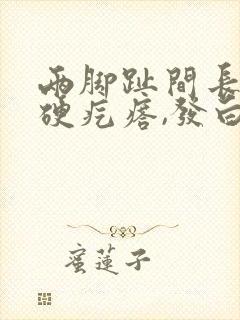 兩腳趾間長
硬疙瘩,發白
蜜蓮子